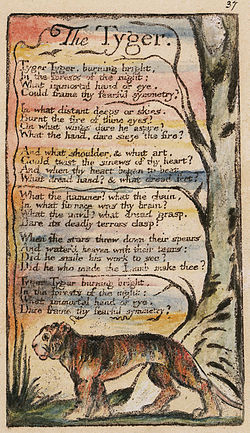 37
The Tyger.
Tyger Tyger, burning bright,
In the forests of the night;
What immortal hand or eye,
Could frame thy fearful symmetry?
In what distant deeps or skies.
Burnt the fire of thine eyes?
On what wings dare he aspire?
What the hand, dare sieze the fire?
And what shoulder, & what art,
Could twist the sinews of thy heart?
And when thy heart began to beat,
What dread hand? & what dread feet?
What the hammer? what the chain,
In what furnace was thy brain?
What the anvil? what dread grasp,
Dare its deadly terrors clasp?
When the stars threw down their spears
And water'd heaven with their tears:
Did he smile his work to see?
Did he who made the Lamb make thee?
Tyger Tyger burning bright,
In the forests of the night:
What immortal hand or eye,
Dare frame thy fearful symmetry?